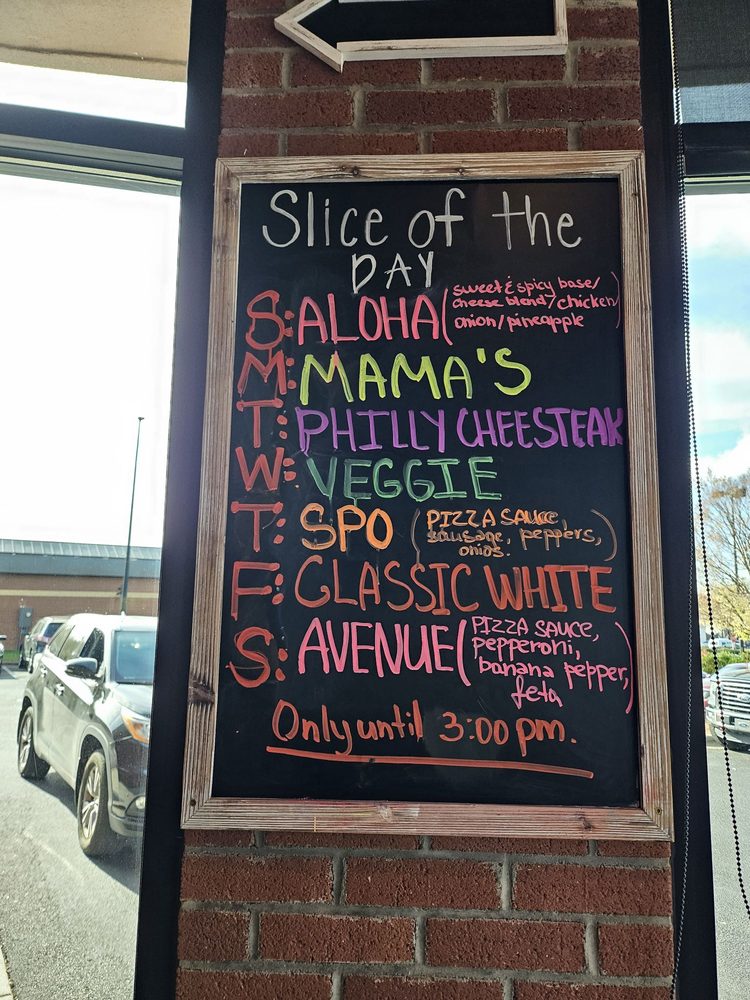 Slice of the
DAY
S: ALOHA (sweet & spicy base/
cheese blend/chicken/
onion/pineapple)
M: MAMA'S
T: PHILLY CHEESTEAK
W: VEGGIE
T: SPO (PIZZA SAUCE,
sausage, peppers,
onios.)
F: CLASSIC WHITE
S: AVENUE (PIZZA SAUCE,
pepperoni,
banana pepper,
feta)
Only until 3:00 pm.